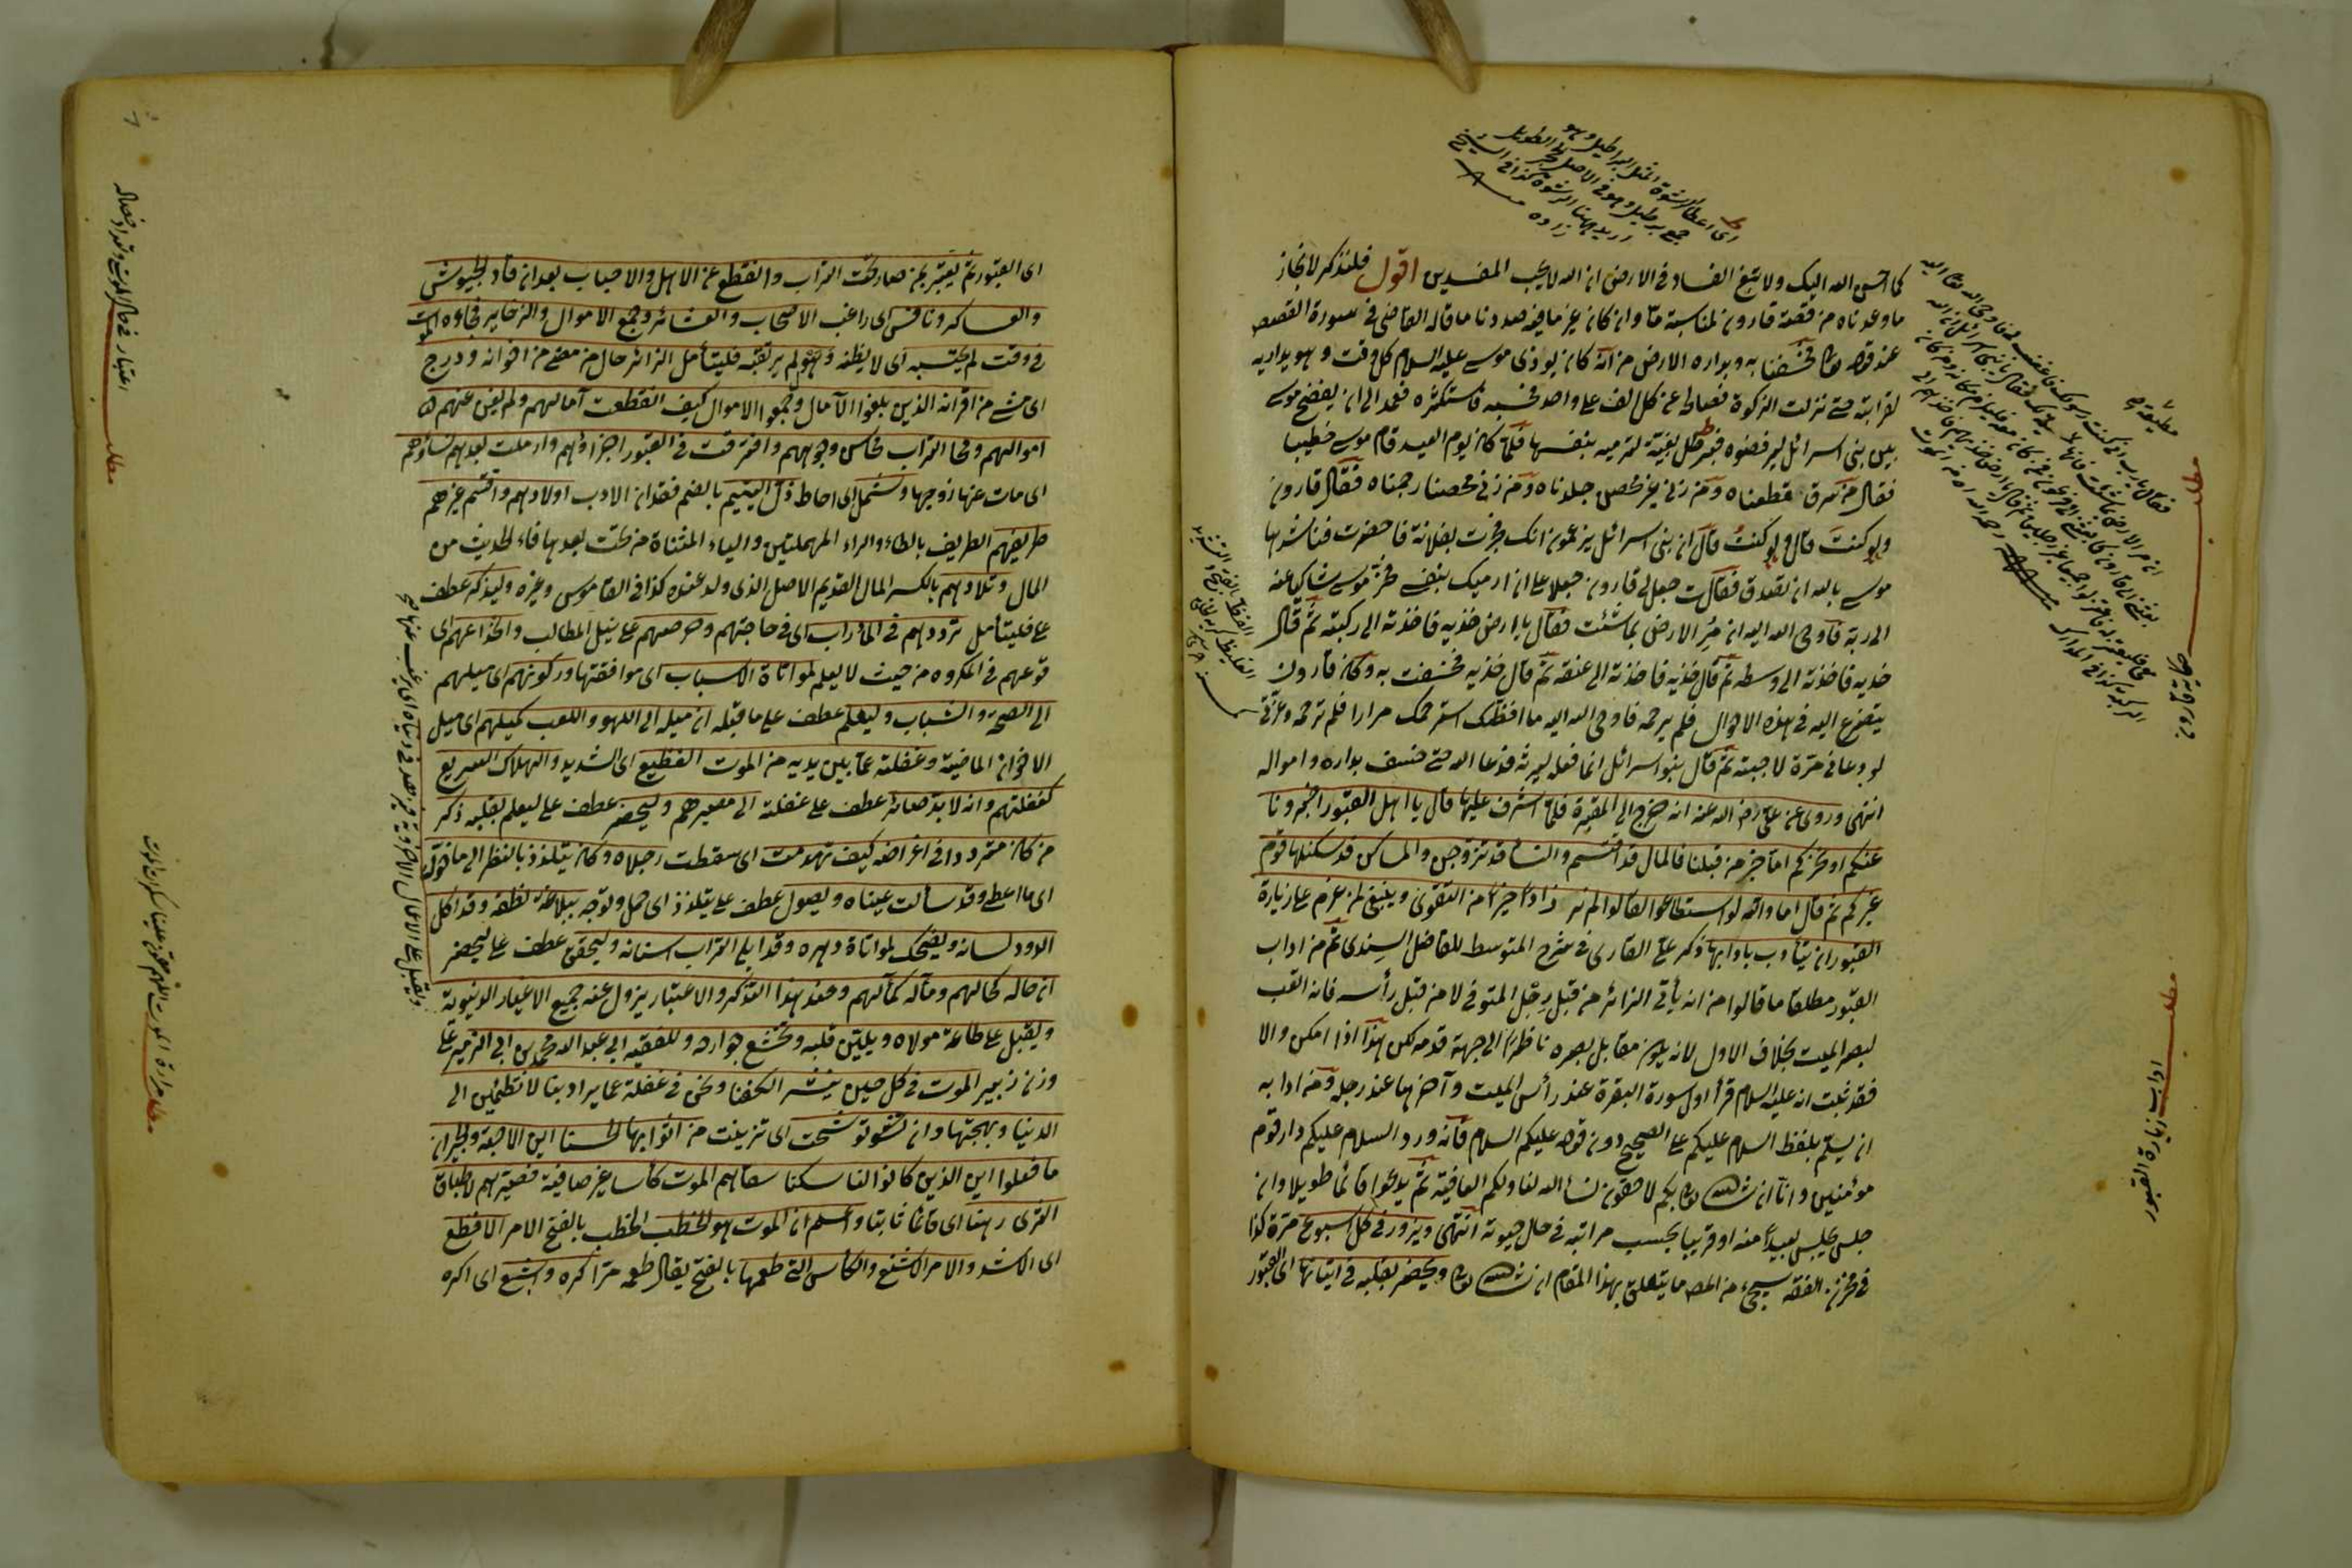 كما احسن الله اليك ولا تبغ الفساد في الارض ان الله لا يحب المفسدين اقول فلنذكر لانجاز
ما وعدناه من قصة قارون لمناسبة ما وان كان غير ما فيه صددنا ما قاله القاضي في سورة القصص
عند قوله تعا فخسفنا به وبداره الارض من انه كان يوذي موسى عليه السلام كل وقت وهو يداريه
لقرابته حتى نزلت الزكوة فصالحه عن كل الف على واحد فحسبه فاستكثره فعمد الى ان يفضح موسى
بين بني اسرائل ليرفضوه فبرطل بغية لترميه بنفسها فلما كان يوم العيد قام موسى خطيبا
فقال من سرق قطعناه ومن زنى غير محصن جلدناه ومن زنى محصنا رجمناه فقال قارون
ولو كنت قال ولو كنت قال ان بني اسرائل يزعمون انك فجرت بفلانة فاحضرت فناشدها
موسى بالله ان تصدق فقالت جعل لي قارون جعلا على ان ارميك بنفسي فخر موسى شاكيا عنه
الى ربه فاوحى الله اليه ان مر الارض بما شئت فقال يا ارض خذيه فاخذته الى ركبته ثم قال
خذيه فاخذته الى وسطه ثم قال خذيه فاخذته الى عنقه ثم قال خذيه فخسفت به وكان قارون
يتضرع اليه في هذه الاحوال فلم يرحمه فاوحى الله اليه ما افظك استرحمك مرارا فلم ترحمه وعزتي
لو دعاني مرة لاجبته ثم قال بنو اسرائل انما فعله ليرثه فدعا الله حتى خسف بداره وامواله
انتهى وروى عن علي رضي الله عنه انه خرج الى المقبرة فلما اشرف عليها قال يا اهل القبور اخبرونا
عنكم او نخبركم اما خبر من قبلنا فالمال قد اقتسم والنساء قد تزوجن والمساكن قد سكنها قوم
غيركم ثم قال اما والله لو استطاعوا لقالوا لم نر زادا خيرا من التقوى وينبغي لمن عزم على زيارة
القبور ان يتأدب بآدابها ذكر علي القاري في شرح المتوسط للفاضل السندي ثم من اداب
القبور مطلقا ما قالوا من انه يأتي الزائر من قبل رجل المتوفى لا من قبل رأسه فانه اتعب
لبصر الميت بخلاف الاول لانه يكون مقابل بصره ناظرا الى جهة قدمه لكن هذا اذا امكن والا
فقد ثبت انه عليه السلام قرأ اول سورة البقرة عند رأس الميت وآخرها عند رجله ومن ادابه
ان يسلم بلفظ السلام عليكم على الصحيح دون قوله عليكم السلام فانه ورد السلام عليكم دار قوم
مؤمنين وانا ان شاء الله تعا بكم لاحقون نسأل الله لنا ولكم العافية ثم يدعوا قائما طويلا وان
جلس يجلس بعيدا منه او قريبا بحسب مراتبه في حال حيوته انتهى ويزور في كل اسبوع مرة كذا
في مخزن الفقه سيجيء من المص ما يتعلق بهذا المقام ان شاء الله تعا ويحضر بقلبه في اتيانها اى القبور
مطلب
مطلب اداب زيارة القبور
اى القبور ثم يعتبر بمن صار تحت التراب وانقطع عن الاهل والاحباب بعد ان قاد الجيوش
والعساكر ونافس اى راغب الاصحاب والعشائر وجمع الاموال والذخاير فجاءه الموت
في وقت لم يحتسبه اى لا يظنه وهول لم يرتقبه فليتأمل الزائر حال من مضى من اخوانه ودرج
اى مشى من اقرانه الذين بلغوا الآمال وجمعوا الاموال كيف انقطعت آمالهم ولم يغن عنهم
اموالهم ومحا التراب محاسن وجوههم وافترقت في القبور اجزاؤهم وارملت بعدهم نساؤهم
اى مات عنها زوجها وشمل اى احاط ذل اليتيم بالضم فقدان الاب اولادهم واقتسم غيرهم
طريفهم الطريف بالطاء والراء المهملتين والياء المثناة من تحت بعدها فاء الحديث من
المال وتلادهم بالكسر المال القديم الاصل الذي ولد عنده كذا في القاموس وغيره وليذكر عطف
على فليتأمل ترددهم في المآرب اى في حاجتهم وحرصهم على نيل المطالب وانخداعهم اى
وقوعهم في المكروه من حيث لا يعلم لمواتاة الاسباب اى موافقتها وركونهم اى ميلهم
الى الصحة والشباب وليعلم عطف على ما قبله ان ميله الى اللهو واللعب كميلهم اى ميل
الاخوان الماضية وغفلته عما بين يديه من الموت الفظيع اى الشديد والهلاك السريع
كغفلتهم وانه لابد صائر عطف على غفلته الى مصيرهم وليحضر عطف على ليعلم بقلبه ذكر
من كان مترددا في اغراضه كيف تهدمت اى سقطت رجلاه وكان يتلذذ بالنظر الى ما خوله
اى ما اعطى وقد سألت عيناه ويصول عطف على يتلذذ اى حمل وتوجه ببلاغة نطقه وقد اكل
الدود لسانه ويضحك لمواتاة دهره وقد ابلى التراب اسنانه وليحقق عطف على ليحضر
ان حاله كحالهم ومآله كمآلهم وعند هذا التذكر والاعتبار يزول عنه جميع الاغيار الدنيوية
ويقبل على طاعة مولاه ويلين قلبه وتخشع جوارحه وللفقيه ابي عبد الله محمد بن ابي الزمنين على
وزن زبير الموت في كل حين ينشر الكفنا ونحن في غفلة عما يراد بنا لا تطمئن الى
الدنيا وبهجتها وان توشحت اى تزينت من اثوابها الحسنا اين الاحبة والجيران
ما فعلوا اين الذين كانوا لنا سكنا سقاهم الموت كأسا غير صافية فصيرهم لاطباق
الثرى رهنا اى قائما ثابتا واعلم ان الموت هو الخطب الخطب بالفتح الامر الافظع
اى الاشد والامر الاشنع والكأس التي طعمها بالفتح يقال طعمه مر اكره وابشع اى اكره
مطلب اعتبار في حال الموت
مطلب مرارة الموت اللهم هون علينا سكرات الموت